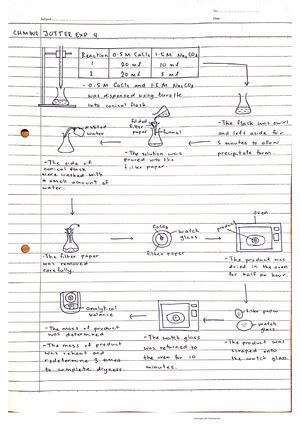 No:
Date:
CHM JOTTER EXP 4
Reaction 0.5 M CaCl2 1.5 M Na2CO3
1 20 ml 10 ml
2 20 ml 5 ml
- 0.5 M CaCl2 and 1.5 M Na2CO3
was dispensed using burette
into conical flask
distilled
water
folded
filter
paper
funnel
- The flask was swirl
and left aside for
5 minutes to allow
precipitate form.
- The solution
was poured into the
filter paper
- The side of
conical flask
were washed with
a small amount of
water.
oven
CaCO3
watch
glass
filter paper
product
- The filter paper
was removed
carefully.
- The product was
dried in the oven
for half an hour.
analytical
balance
filter paper
watch
glass
- The mass of product
was determined
- The mass of product
was reheat and
redetermine 3 times
to complete dryness.
- The watch glass
was returned to
the oven for 10
minutes.
- The product was
scraped onto
the watch glass